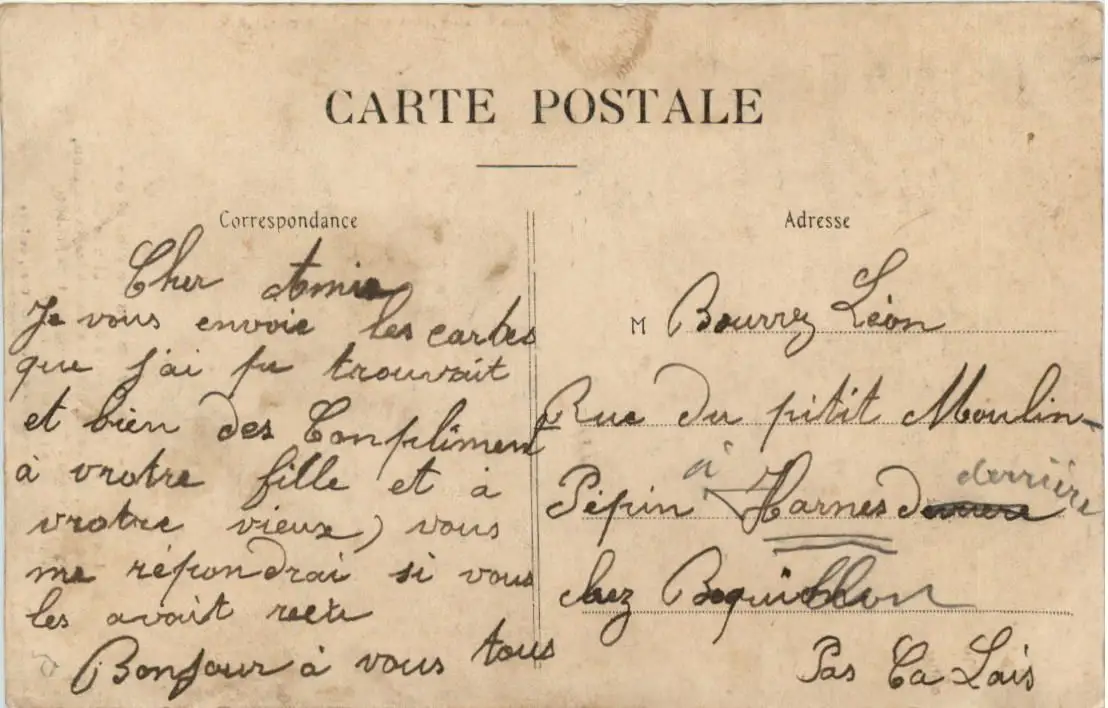 CARTE POSTALE
Correspondance
Cher Amie
Je vous envoie les cartes
que j'ai pu trouvait
et bien des Conpliment
à vrotre fille et à
vrotre vieux, vous
me répondrai si vous
les avait reçu
Bonjour à vous tous
Adresse
M Bourrez Léon
Rue du pitit Moulin-
Pépin à Harnes derrière
chez
Pas Ca Lais